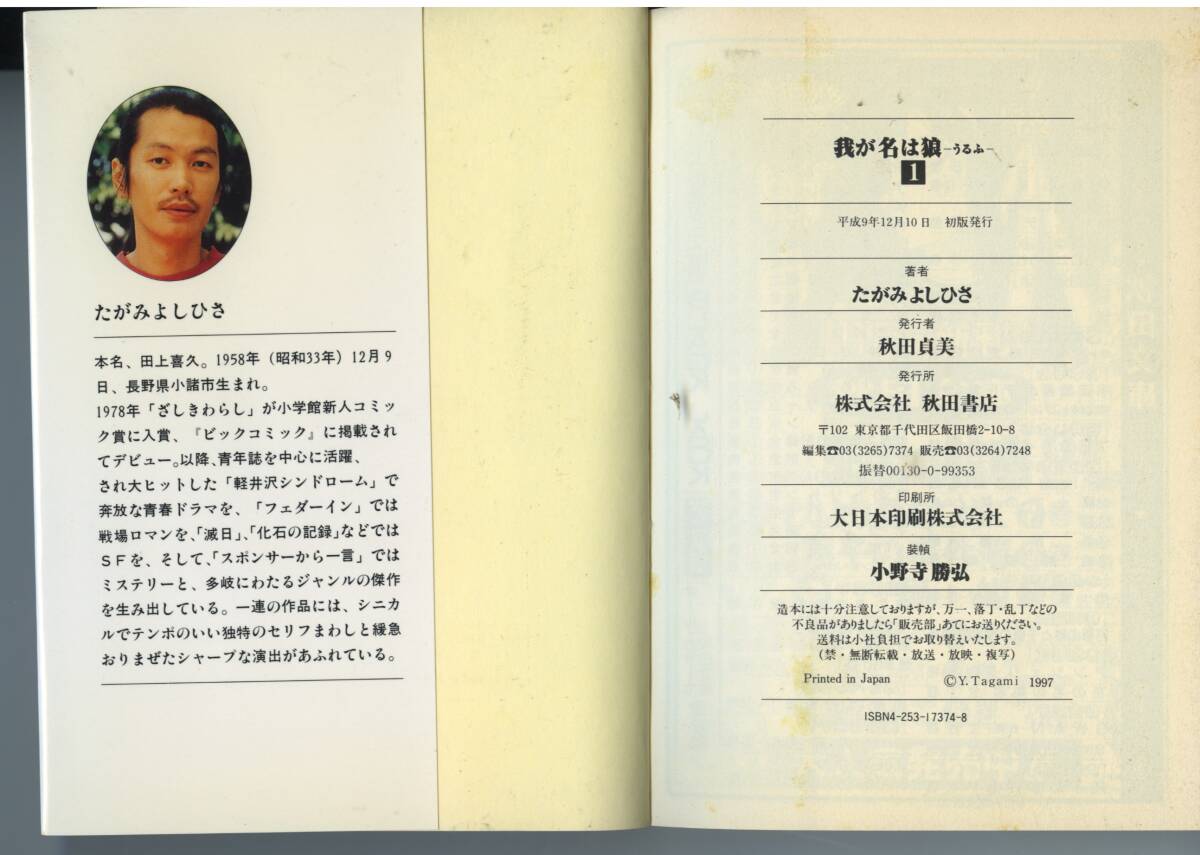 たがみよしひさ
本名、田上喜久。1958年（昭和33年）12月9
日、長野県小諸市生まれ。
1978年「ざしきわらし」が小学館新人コミッ
ク賞に入賞、『ビックコミック』に掲載され
てデビュー。以降、青年誌を中心に活躍、
され大ヒットした「軽井沢シンドローム」で
奔放な青春ドラマを、「フェダーイン」では
戦場ロマンを、「滅日」、「化石の記録」などでは
ＳＦを、そして、「スポンサーから一言」では
ミステリーと、多岐にわたるジャンルの傑作
を生み出している。一連の作品には、シニカ
ルでテンポのいい独特のセリフまわしと緩急
おりまぜたシャープな演出があふれている。
我が名は狼-うるふ-
1
平成9年12月10日　初版発行
著者
たがみよしひさ
発行者
秋田貞美
発行所
株式会社 秋田書店
〒102 東京都千代田区飯田橋2-10-8
編集☎03(3265)7374 販売☎03(3264)7248
振替00130-0-99353
印刷所
大日本印刷株式会社
装幀
小野寺勝弘
造本には十分注意しておりますが、万一、落丁・乱丁などの
不良品がありましたら「販売部」あてにお送りください。
送料は小社負担でお取り替えいたします。
（禁・無断転載・放送・放映・複写）
Printed in Japan ©Y.Tagami 1997
ISBN4-253-17374-8